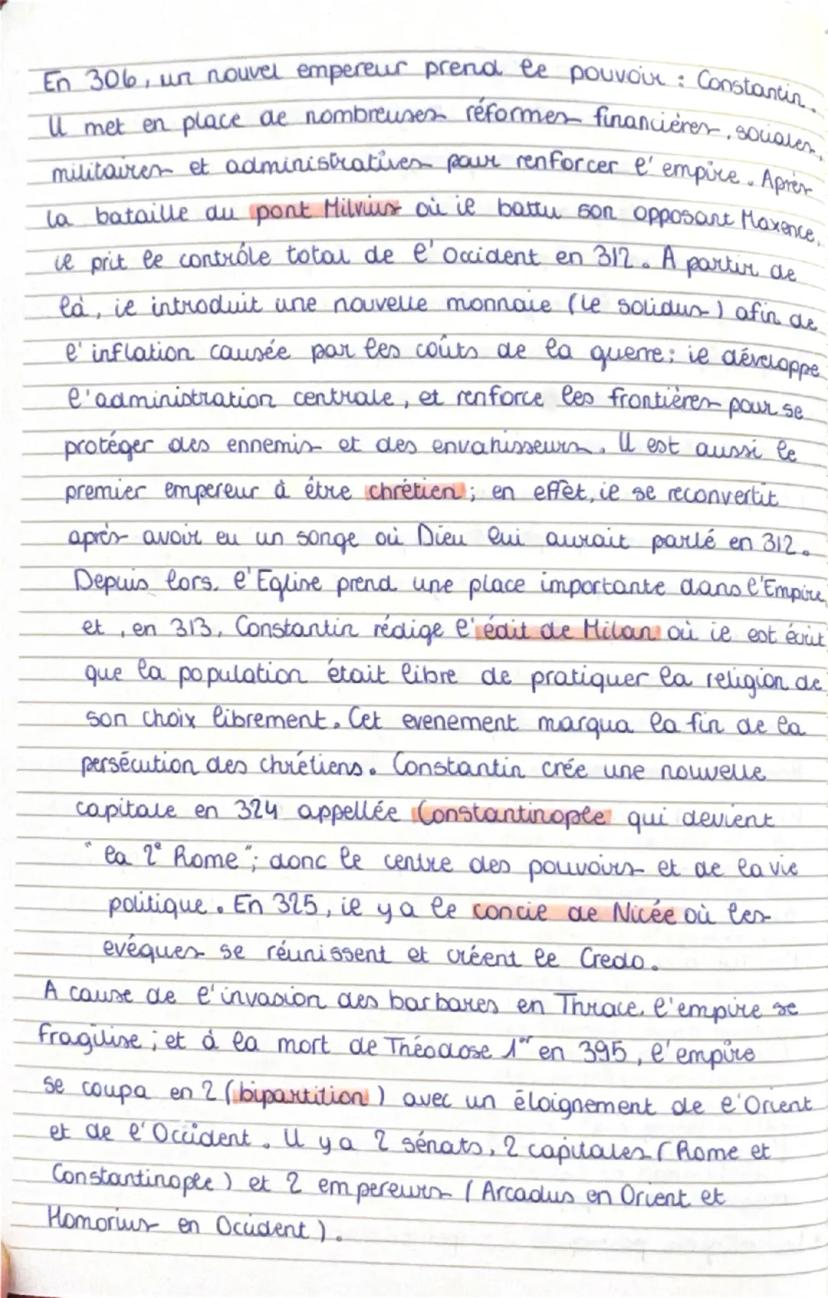 En 306, un nouvel empereur prend le pouvoir : Constantin.
Il met en place de nombreuses réformes financières, sociales,
militaires et administratives pour renforcer l'empire. Après
la bataille du pont Milvius où il battu son opposant Maxence,
il prit le contrôle total de l'Occident en 312. A partir de
là, il introduit une nouvelle monnaie (le solidus) afin de
l'inflation causée par les coûts de la guerre; il développe
l'administration centrale, et renforce les frontières pour se
protéger des ennemis et des envahisseurs. Il est aussi le
premier empereur à être chrétien; en effet, il se reconvertit
après avoir eu un songe où Dieu lui aurait parlé en 312.
Depuis lors, l'Eglise prend une place importante dans l'Empire
et, en 313, Constantin rédige l'édit de Milan où il est écrit
que la population était libre de pratiquer la religion de
son choix librement. Cet evenement marqua la fin de la
persécution des chrétiens. Constantin crée une nouvelle
capitale en 324 appellée Constantinople qui devient
"la 2e Rome"; donc le centre des pouvoirs et de la vie
politique. En 325, il y a le concie de Nicée où les
evéques se réunissent et créent le Credo.
A cause de l'invasion des barbares en Thrace, l'empire se
fragilise; et à la mort de Théodose 1er en 395, l'empire
se coupa en 2 (bipartition) avec un éloignement de l'Orient
et de l'Occident. Il y a 2 sénats, 2 capitales (Rome et
Constantinople) et 2 empereurs (Arcadus en Orient et
Homorius en Occident).